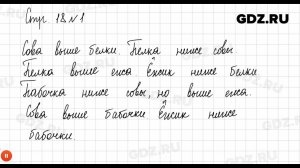 Стр. 18 №1
GDZ.RU
Сова выше белки. Белка ниже совы.
Белка выше ежа. Ёжик ниже белки.
Бабочка ниже совы, но выше ежа.
Сова выше бабочки. Ёжик ниже
бабочки.
GDZ.RU